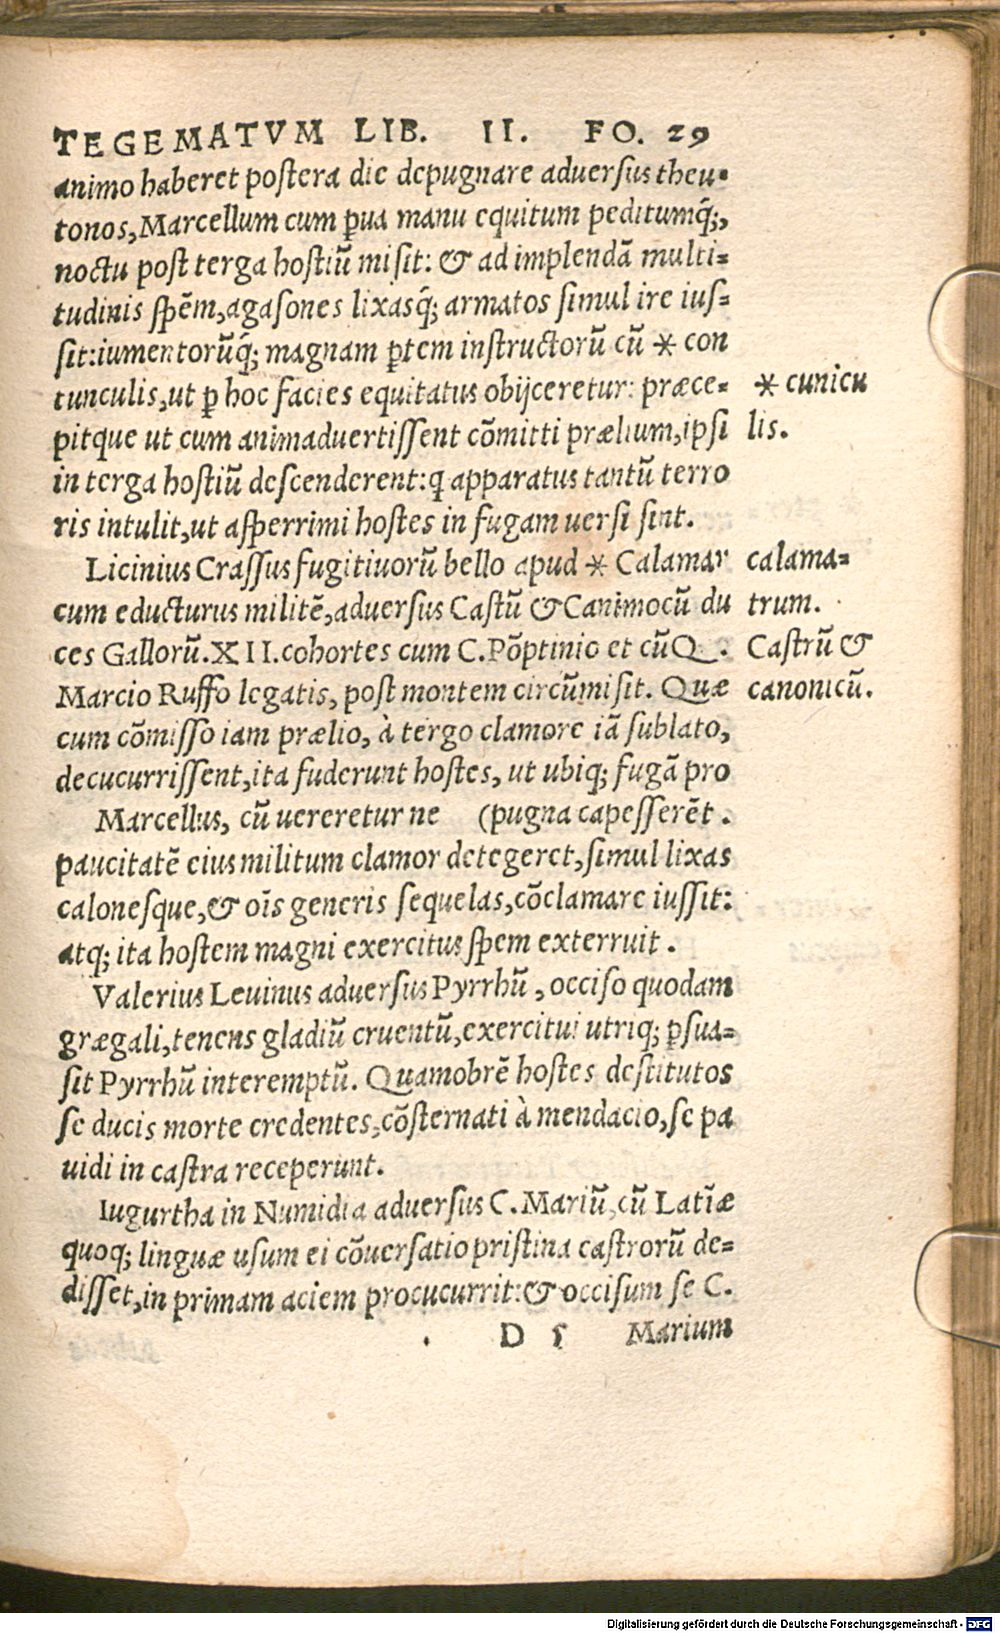 TEGEMATVM LIB. II. FO. 29
animo haberet postera die depugnare aduersus theu=
tonos, Marcellum cum ꝑua manu equitum peditumq̃;,
noctu post terga hostiũ misit: & ad implendã multi=
tudinis spẽm, agasones lixasq̃; armatos simul ire ius=
sit: iumentorũq̃; magnam ꝑtem instructorũ cũ * con
tunculis, ut ꝑ hoc facies equitatus obijceretur: præce=
* cunicu
pitque ut cum animaduertissent cõmitti prælium, ipsi
lis.
in terga hostiũ descenderent: q apparatus tantũ terro
ris intulit, ut asperrimi hostes in fugam uersi sint.
Licinius Crassus fugitiuorũ bello apud * Calamar
calama=
cum educturus militẽ, aduersus Castũ & Canimocũ du
trum.
ces Gallorũ. XII. cohortes cum C. Põptinio et cũ Q.
Castrũ &
Marcio Ruffo legatis, post montem circũmisit. Quæ
canonicũ.
cum cõmisso iam prælio, à tergo clamore iã sublato,
decucurrissent, ita fuderunt hostes, ut ubiq; fugã pro
Marcellus, cũ uereretur ne (pugna capesserẽt.
paucitatẽ eius militum clamor detegeret, simul lixas
calonesque, & oĩs generis sequelas, cõclamare iussit:
atq; ita hostem magni exercitus spem exterruit.
Valerius Leuinus aduersus Pyrrhũ, occiso quodam
grægali, tenens gladiũ cruentũ, exercitui utriq; ꝑsua=
sit Pyrrhũ interemptũ. Quamobrẽ hostes destitutos
se ducis morte credentes, cõsternati à mendacio, se pa
uidi in castra receperunt.
Iugurtha in Numidia aduersus C. Mariũ, cũ Latĩæ
quoq; linguæ usum ei cõuersatio pristina castrorũ de=
disset, in primam aciem procucurrit: & occisum se C.
D 5 Marium
Digitalisierung gefördert durch die Deutsche Forschungsgemeinschaft - DFG